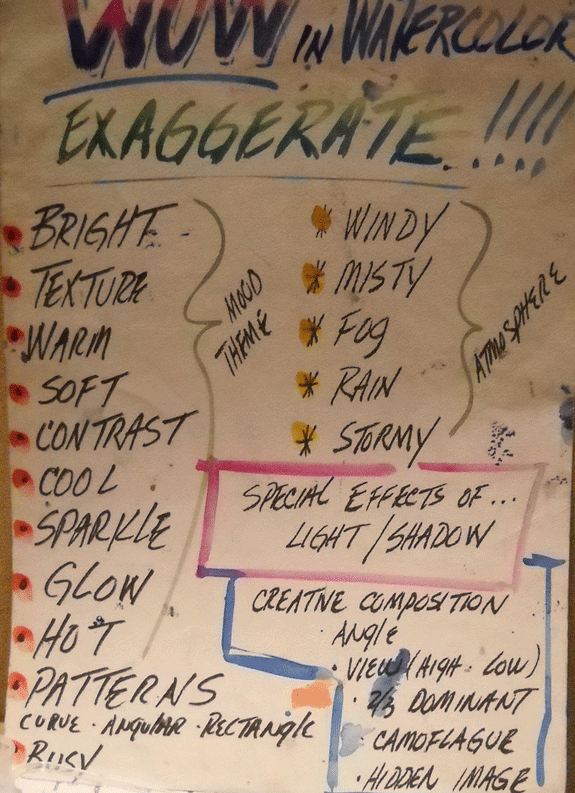 WOW IN WATERCOLOR
EXAGGERATE..!!!!
BRIGHT
TEXTURE
WARM
SOFT
CONTRAST
COOL
SPARKLE
GLOW
HOT
PATTERNS
CURVE · ANGULAR · RECTANGLE
MOOD
THEME
WINDY
MISTY
FOG
RAIN
STORMY
ATMOSPHERE
SPECIAL EFFECTS OF...
LIGHT/SHADOW
CREATIVE COMPOSITION
· ANGLE
· VIEW (HIGH · LOW)
· 2/3 DOMINANT
CAMOFLAGUE
· HIDDEN IMAGE